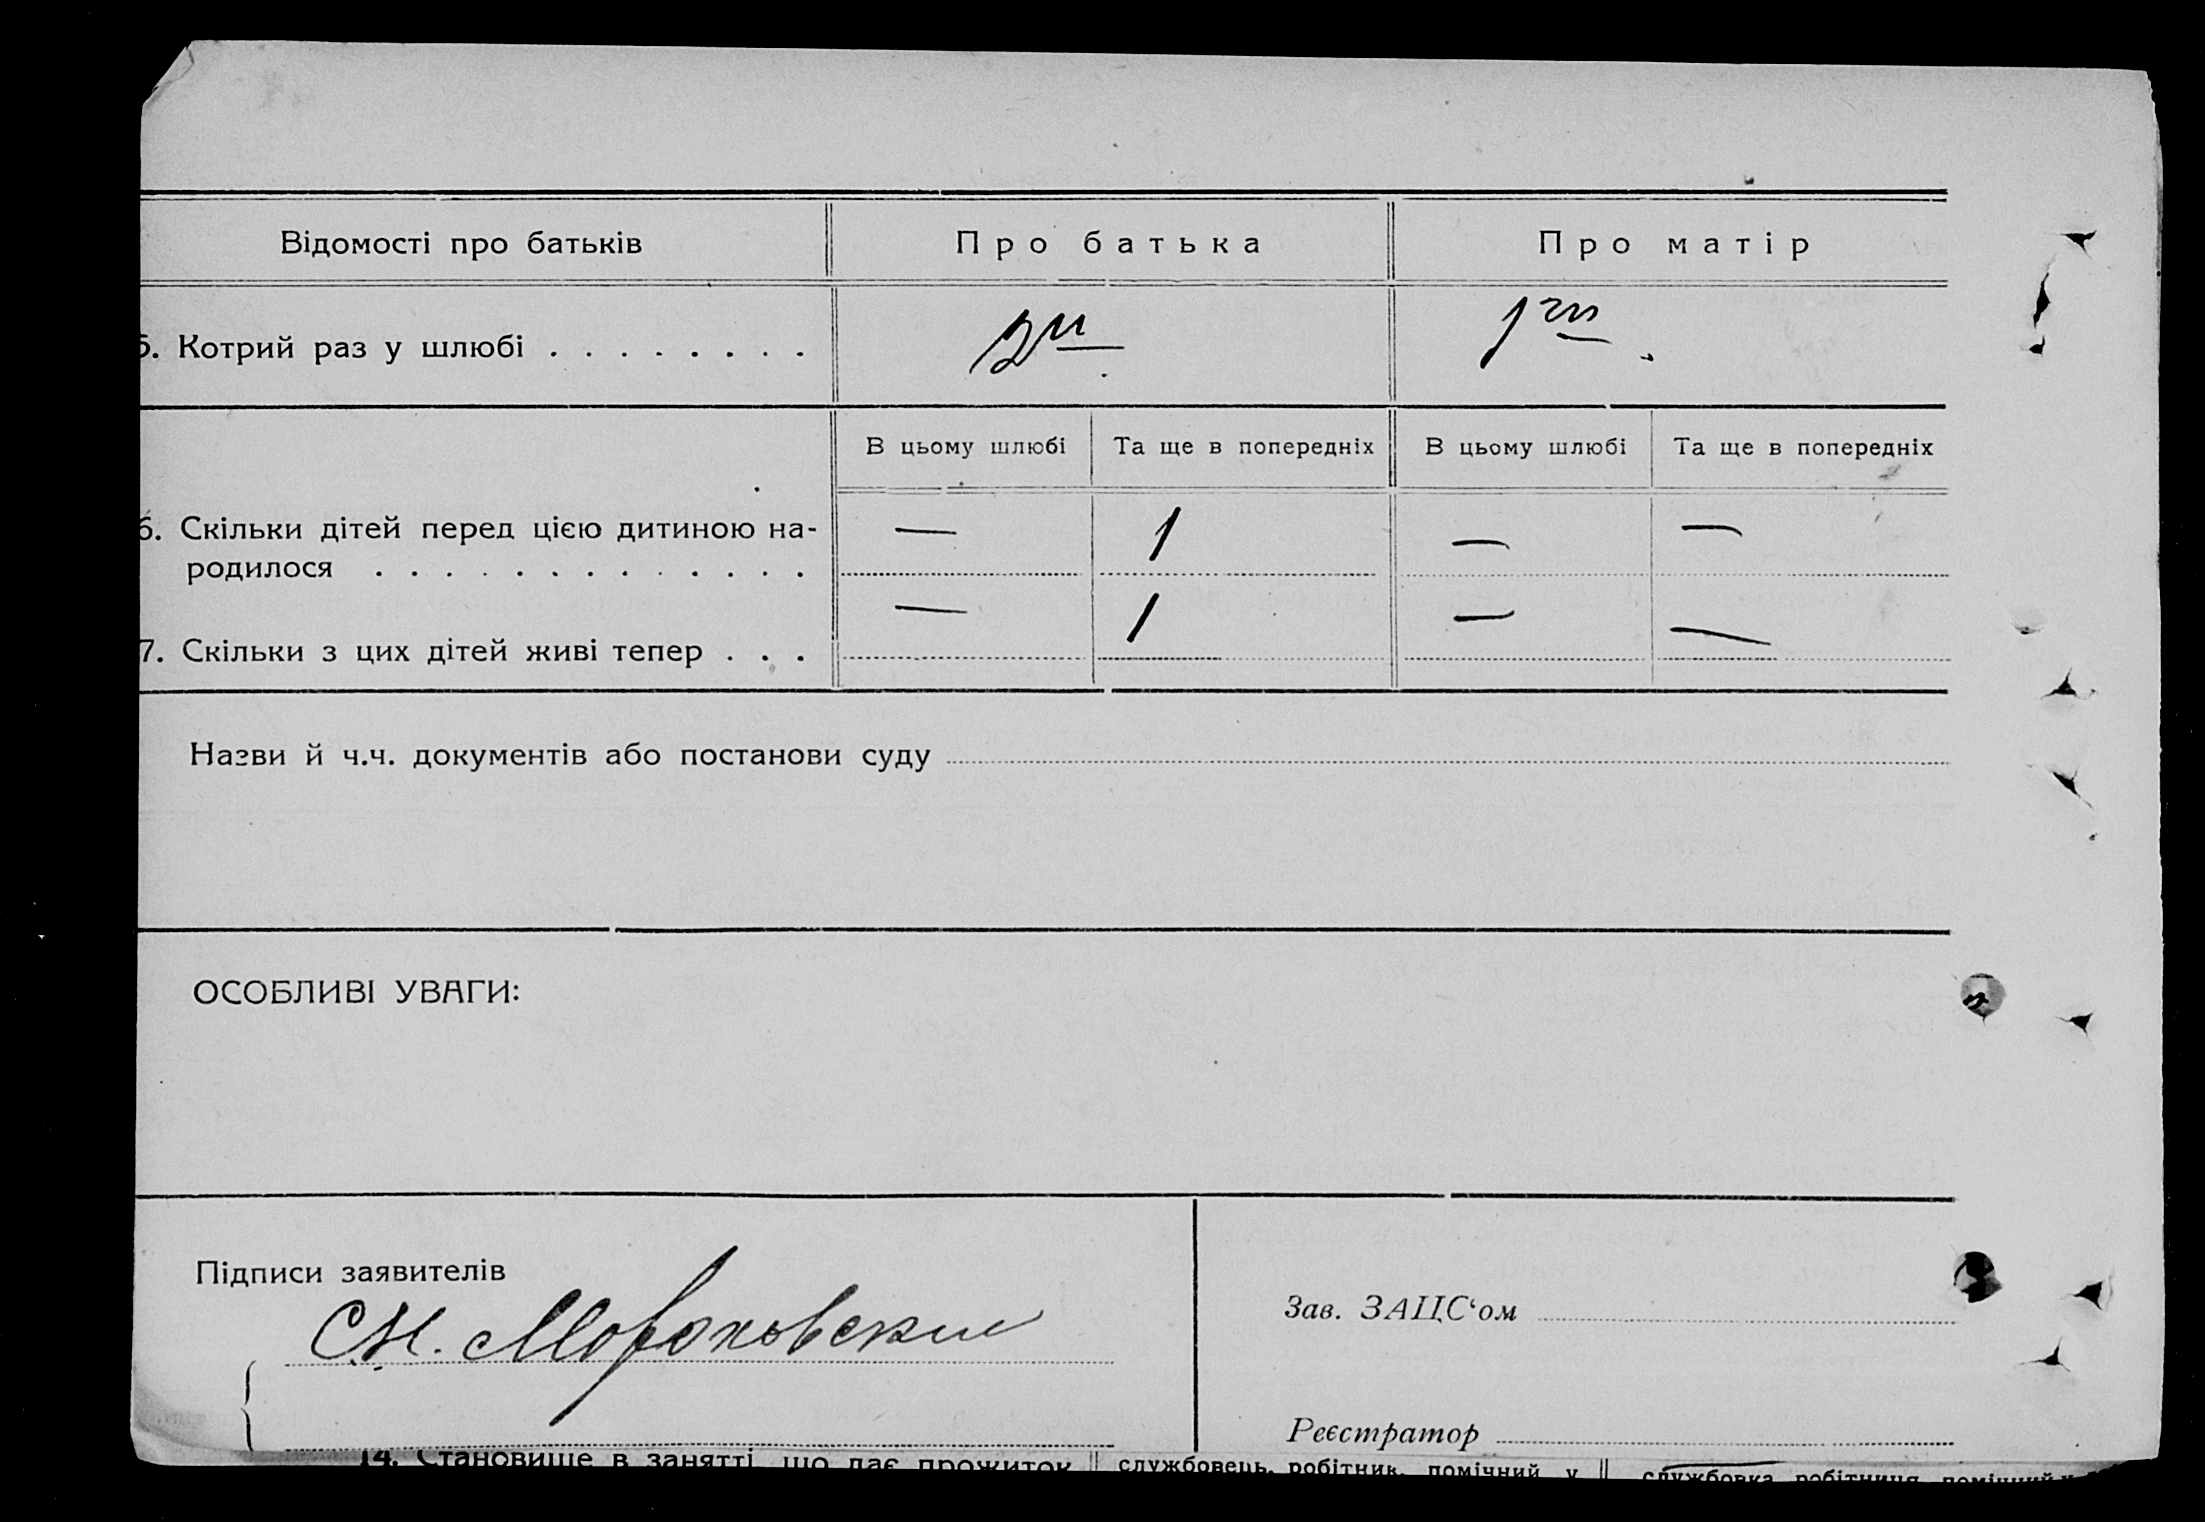 Відомості про батьків Про батька Про матір
5. Котрий раз у шлюбі . . . . . . . .
В цьому шлюбі Та ще в попередніх В цьому шлюбі Та ще в попередніх
6. Скільки дітей перед цією дитиною на- — 1 — —
родилося . . . . . . . . . . . . .
7. Скільки з цих дітей живі тепер . . . — 1 — —
Назви й ч.ч. документів або постанови суду
ОСОБЛИВІ УВАГИ:
Підписи заявителів
Зав. ЗАЦС‘ом
Реєстратор
14. Становище в занятті, що дає прожиток службовець, робітник, помічний у службовка робітниця помічний у